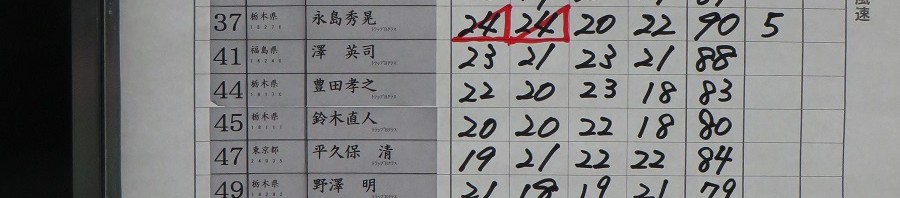 風速
37 栃木県 永島秀晃 24 24 20 22 90 5
41 福島県 澤 英司 23 21 23 21 88
44 栃木県 豊田孝之 22 20 23 18 83
45 栃木県 鈴木直人 20 20 22 18 80
47 東京都 平久保 清 19 21 22 22 84
49 栃木県 野澤 明 21 18 19 21 79